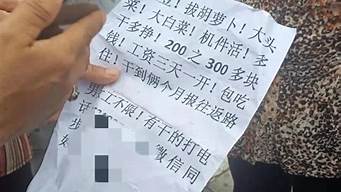 豆！拔胡萝卜！大头
菜！大白菜！机件活！多
干多挣！200 之 300 多块
钱！工资三天一开！包吃
住！干到俩个月报往返路
男工不限！有干的打电
微信同
步